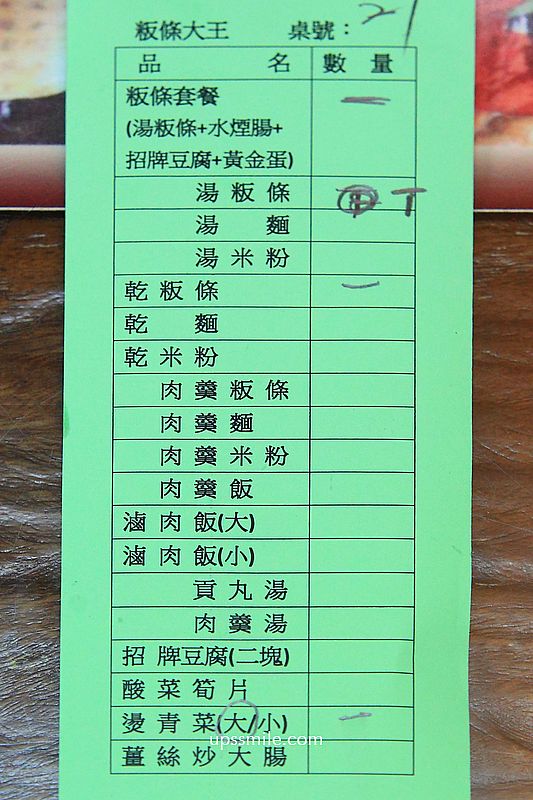 粄條大王 桌號：21
品 名 數 量
粄條套餐 一
(湯粄條+水煙腸+
招牌豆腐+黃金蛋)
湯 粄 條 T
湯 麵
湯 米 粉
乾 粄 條 一
乾 麵
乾 米 粉
肉 羹 粄 條
肉 羹 麵
肉 羹 米 粉
肉 羹 飯
滷 肉 飯(大)
滷 肉 飯(小)
貢 丸 湯
肉 羹 湯
招 牌豆腐(二塊)
酸 菜 筍 片
燙 青 菜(大/小) 一
upssmile.com
薑 絲 炒 大 腸